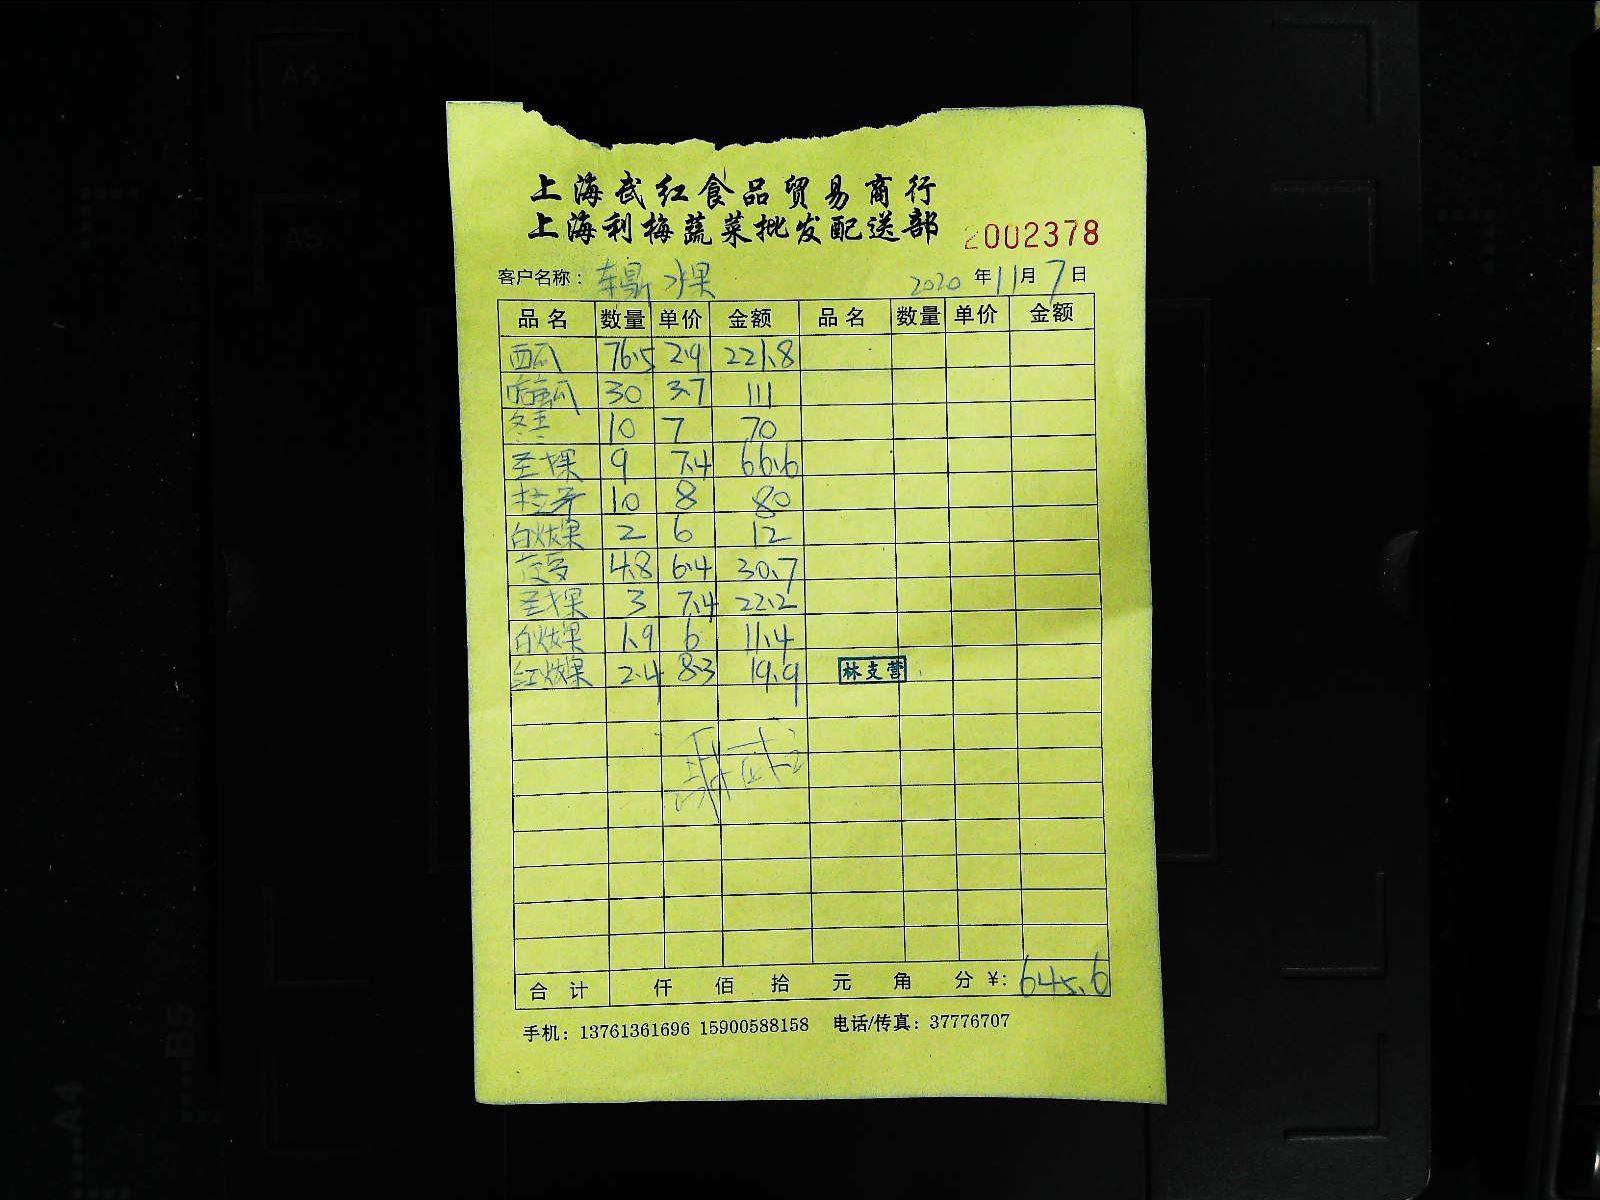 上海武红食品贸易商行
上海利梅蔬菜批发配送部 2002378
客户名称： 车鼎 水果 2020 年 11 月 7 日
品名 数量 单价 金额 品名 数量 单价 金额
西瓜 76.5 2.9 221.8
哈密瓜 30 3.7 111
冬枣 10 7 70
圣女果 9 7.4 66.6
10 8 80
白火龙果 2 6 12
4.8 6.4 30.7
圣女果 3 7.4 22.2
白火龙果 1.9 6 11.4
红火龙果 2.4 8.3 19.9 林支营
合计 仟 佰 拾 元 角 分 ¥: 645.6
手机：13761361696 15900588158 电话/传真：37776707